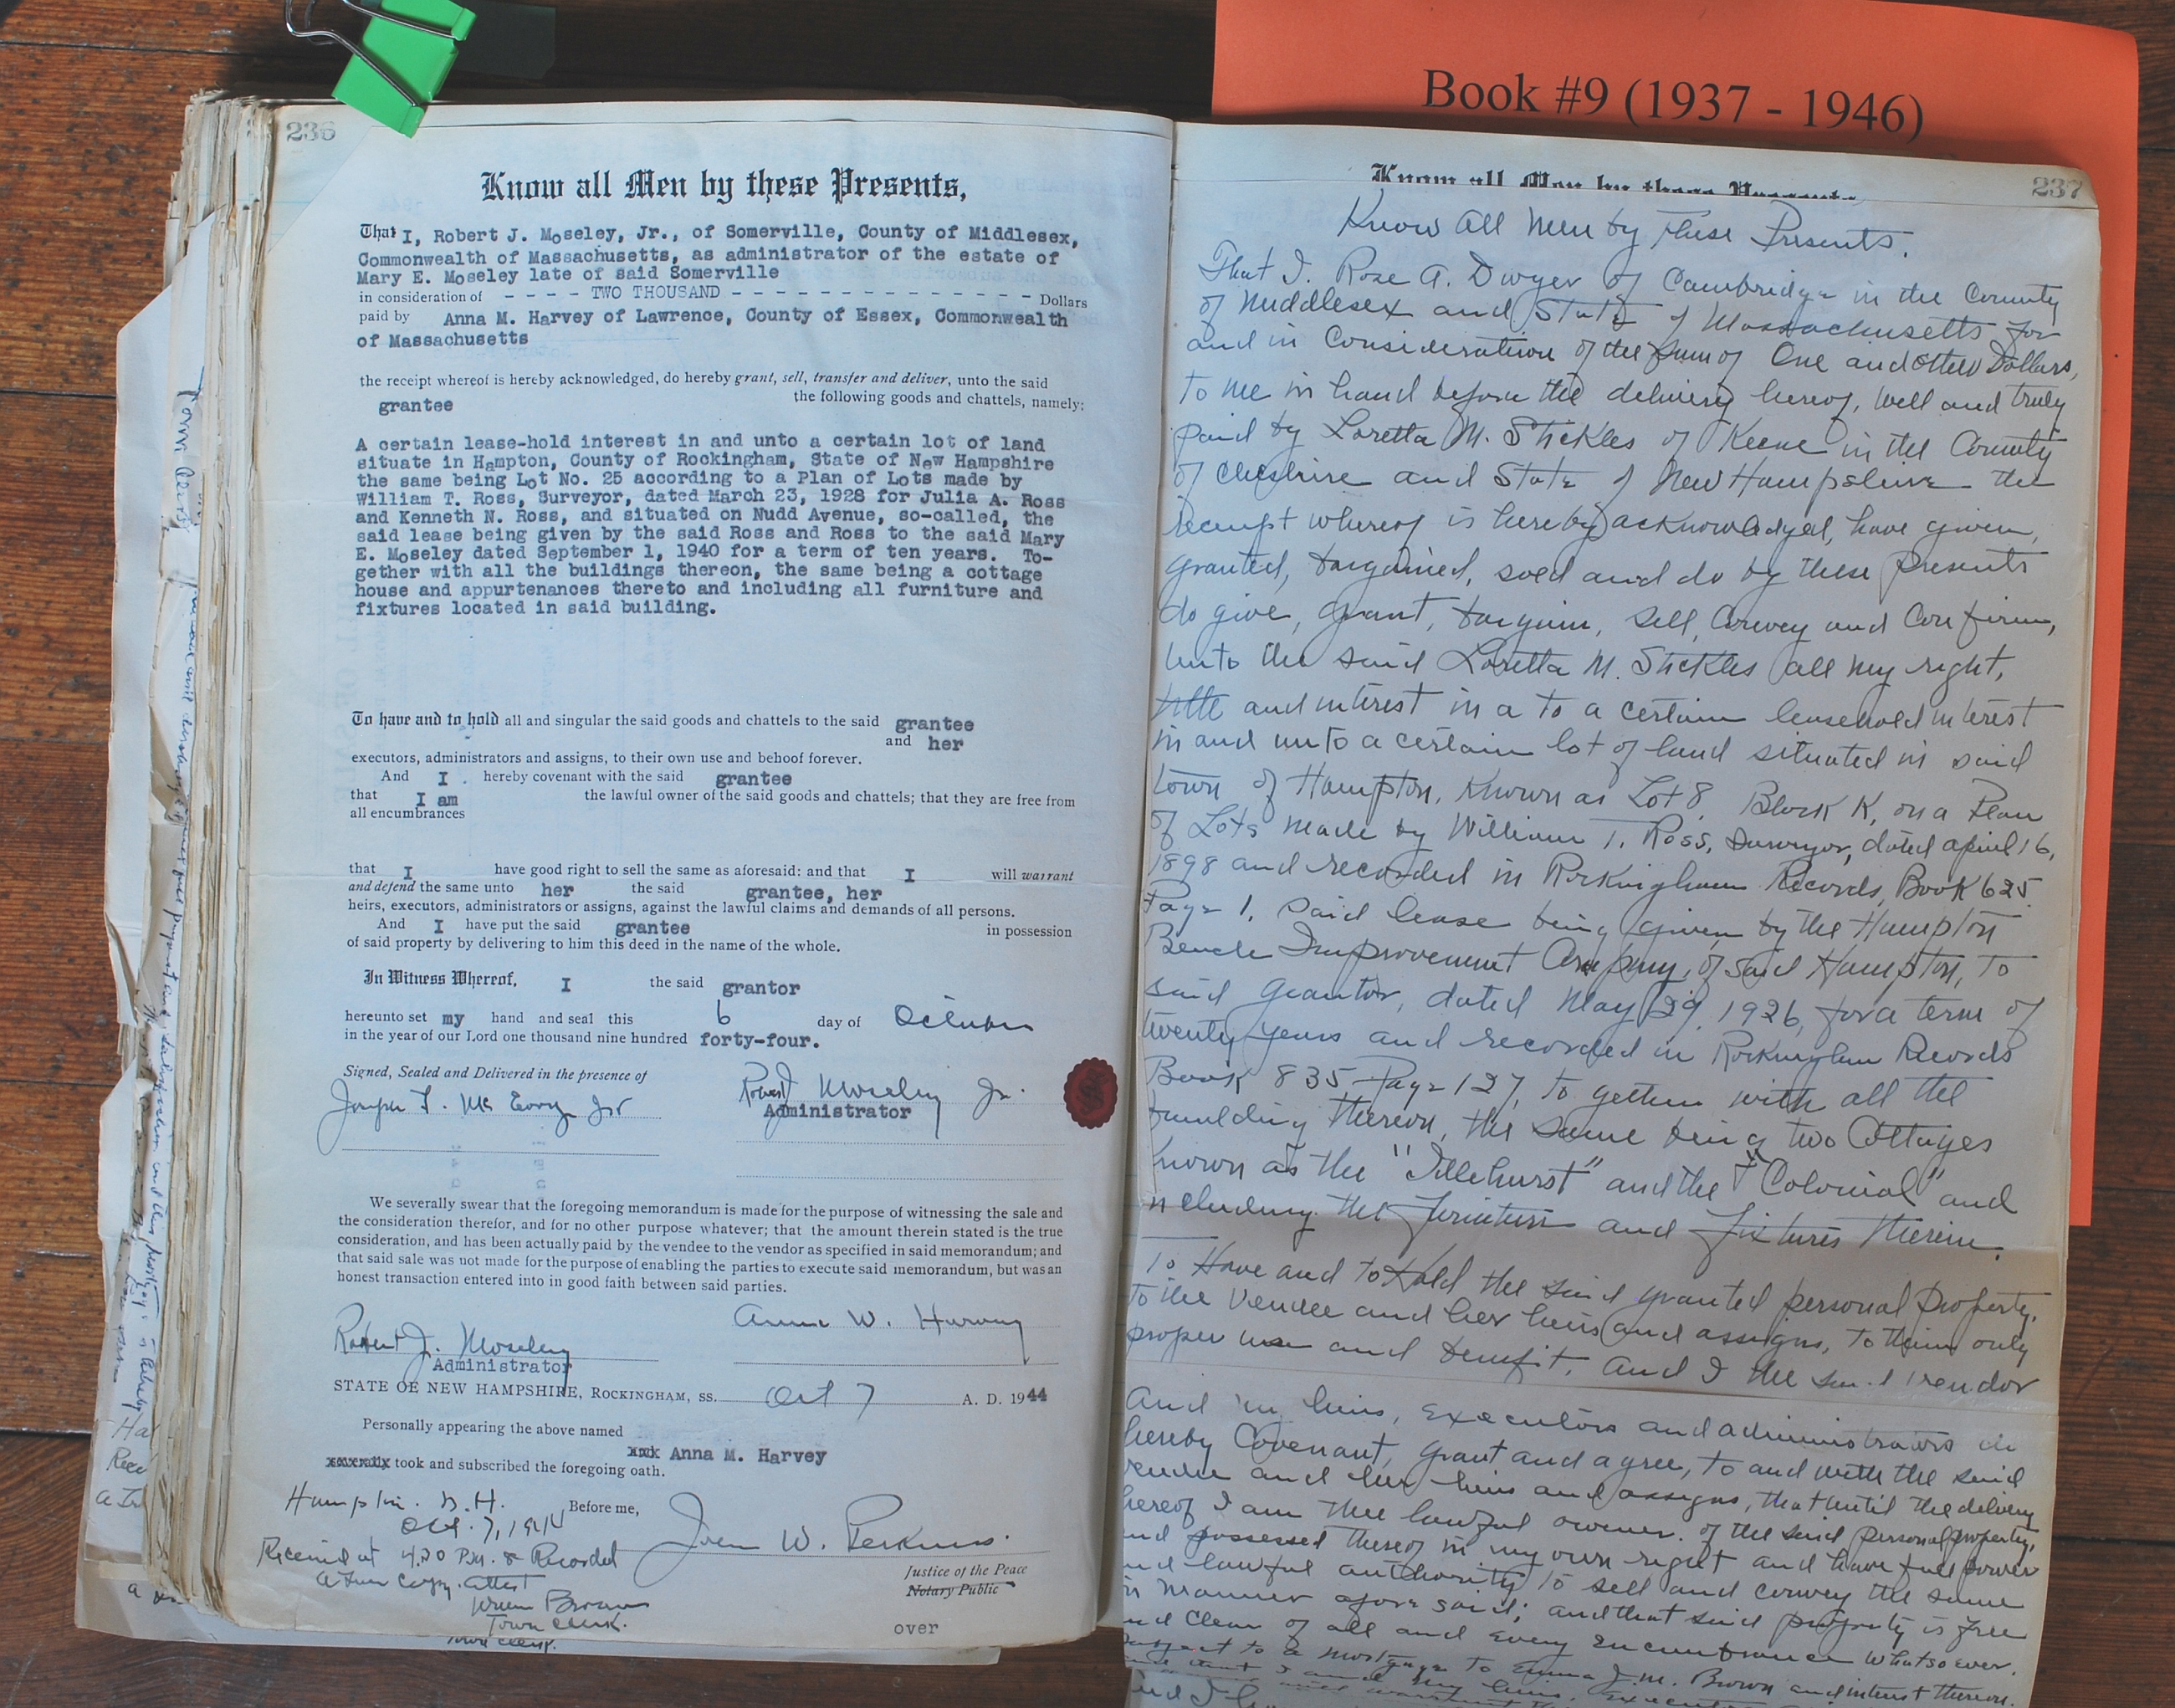 Book #9 (1937 - 1946)
236
Know all Men by these Presents,
That I, Robert J. Moseley, Jr., of Somerville, County of Middlesex,
Commonwealth of Massachusetts, as administrator of the estate of
Mary E. Moseley late of said Somerville
in consideration of - - - - TWO THOUSAND - - - - - - - - - - - - - - - Dollars
paid by Anna M. Harvey of Lawrence, County of Essex, Commonwealth
of Massachusetts
the receipt whereof is hereby acknowledged, do hereby grant, sell, transfer and deliver, unto the said
grantee the following goods and chattels, namely:
A certain lease-hold interest in and unto a certain lot of land
situate in Hampton, County of Rockingham, State of New Hampshire
the same being Lot No. 25 according to a Plan of Lots made by
William T. Ross, Surveyor, dated March 23, 1928 for Julia A. Ross
and Kenneth N. Ross, and situated on Nudd Avenue, so-called, the
said lease being given by the said Ross and Ross to the said Mary
E. Moseley dated September 1, 1940 for a term of ten years. To-
gether with all the buildings thereon, the same being a cottage
house and appurtenances thereto and including all furniture and
fixtures located in said building.
To have and to hold all and singular the said goods and chattels to the said grantee
and her
executors, administrators and assigns, to their own use and behoof forever.
And I hereby covenant with the said grantee
that I am the lawful owner of the said goods and chattels; that they are free from
all encumbrances
that I have good right to sell the same as aforesaid: and that I will warrant
and defend the same unto her the said grantee, her
heirs, executors, administrators or assigns, against the lawful claims and demands of all persons.
And I have put the said grantee in possession
of said property by delivering to him this deed in the name of the whole.
In Witness Whereof, I the said grantor
hereunto set my hand and seal this 6 day of October
in the year of our Lord one thousand nine hundred forty-four.
Signed, Sealed and Delivered in the presence of
Joseph F. McEvoy Jr Robert J Moseley Jr.
Administrator
We severally swear that the foregoing memorandum is made for the purpose of witnessing the sale and
the consideration therefor, and for no other purpose whatever; that the amount therein stated is the true
consideration, and has been actually paid by the vendee to the vendor as specified in said memorandum; and
that said sale was not made for the purpose of enabling the parties to execute said memorandum, but was an
honest transaction entered into in good faith between said parties.
Robert J. Moseley Harvey
Administrator
STATE OF NEW HAMPSHIRE, ROCKINGHAM, SS. Oct 7 A. D. 1944
Personally appearing the above named
Anna M. Harvey
took and subscribed the foregoing oath.
Hampton. N.H. Before me,
Oct. 7, 1944
Received at 4.20 P.M. & Recorded
John W. Perkins
a true copy. attest
Justice of the Peace
Notary Public
Brown
Town Clerk.
Town Clerk.
over
237
Know all Men by these Presents
Know All Men by These Presents.
That I. Rose A. Dwyer of Cambridge in the County
of Middlesex and State of Massachusetts for
and in Consideration of the sum of One and other Dollars,
to me in hand before the delivery hereof, well and truly
paid by Loretta M. Stickles of Keene in the County
of Cheshire and State of New Hampshire the
receipt whereof is hereby acknowledged, have given,
granted, bargained, sold and do by these presents
do give, grant, bargain, sell, Convey and Confirm,
unto the said Loretta M. Stickles all my right,
title and interest in a to a certain leasehold interest
in and unto a certain lot of land situated in said
town of Hampton, Known as Lot 8, Block K, on a Plan
of Lots made by William T. Ross, Surveyor, dated april 16,
1898 and recorded in Rockingham Records, Book 625
Page 1. Said lease being given by the Hampton
Beach Improvement Company, of said Hampton, to
said grantor, dated May 29, 1926, for a term of
twenty years and recorded in Rockingham Records
Book 835 Page 127, to gether with all the
building thereon, the same being two Cottages
known as the "Idlehurst" and the "Colonial" and
including the furniture and fixtures therein.
To Have and to Hold the said granted personal property,
to the Vendee and her heirs and assigns, to their only
proper use and benefit. And I the said vendor
And my heirs, executors and administrators do
hereby Covenant, grant and agree, to and with the said
vendee and her heirs and assigns, that until the delivery
hereof I am the lawful owner. of the said personal property,
and possessed thereof in my own right and have full power
and lawful authority to sell and convey the same
in manner afore said; and that said property is free
and clear of all and every encumbrance whatsoever.
subject to a mortgage to Emma J. M. Brown and interest thereon.